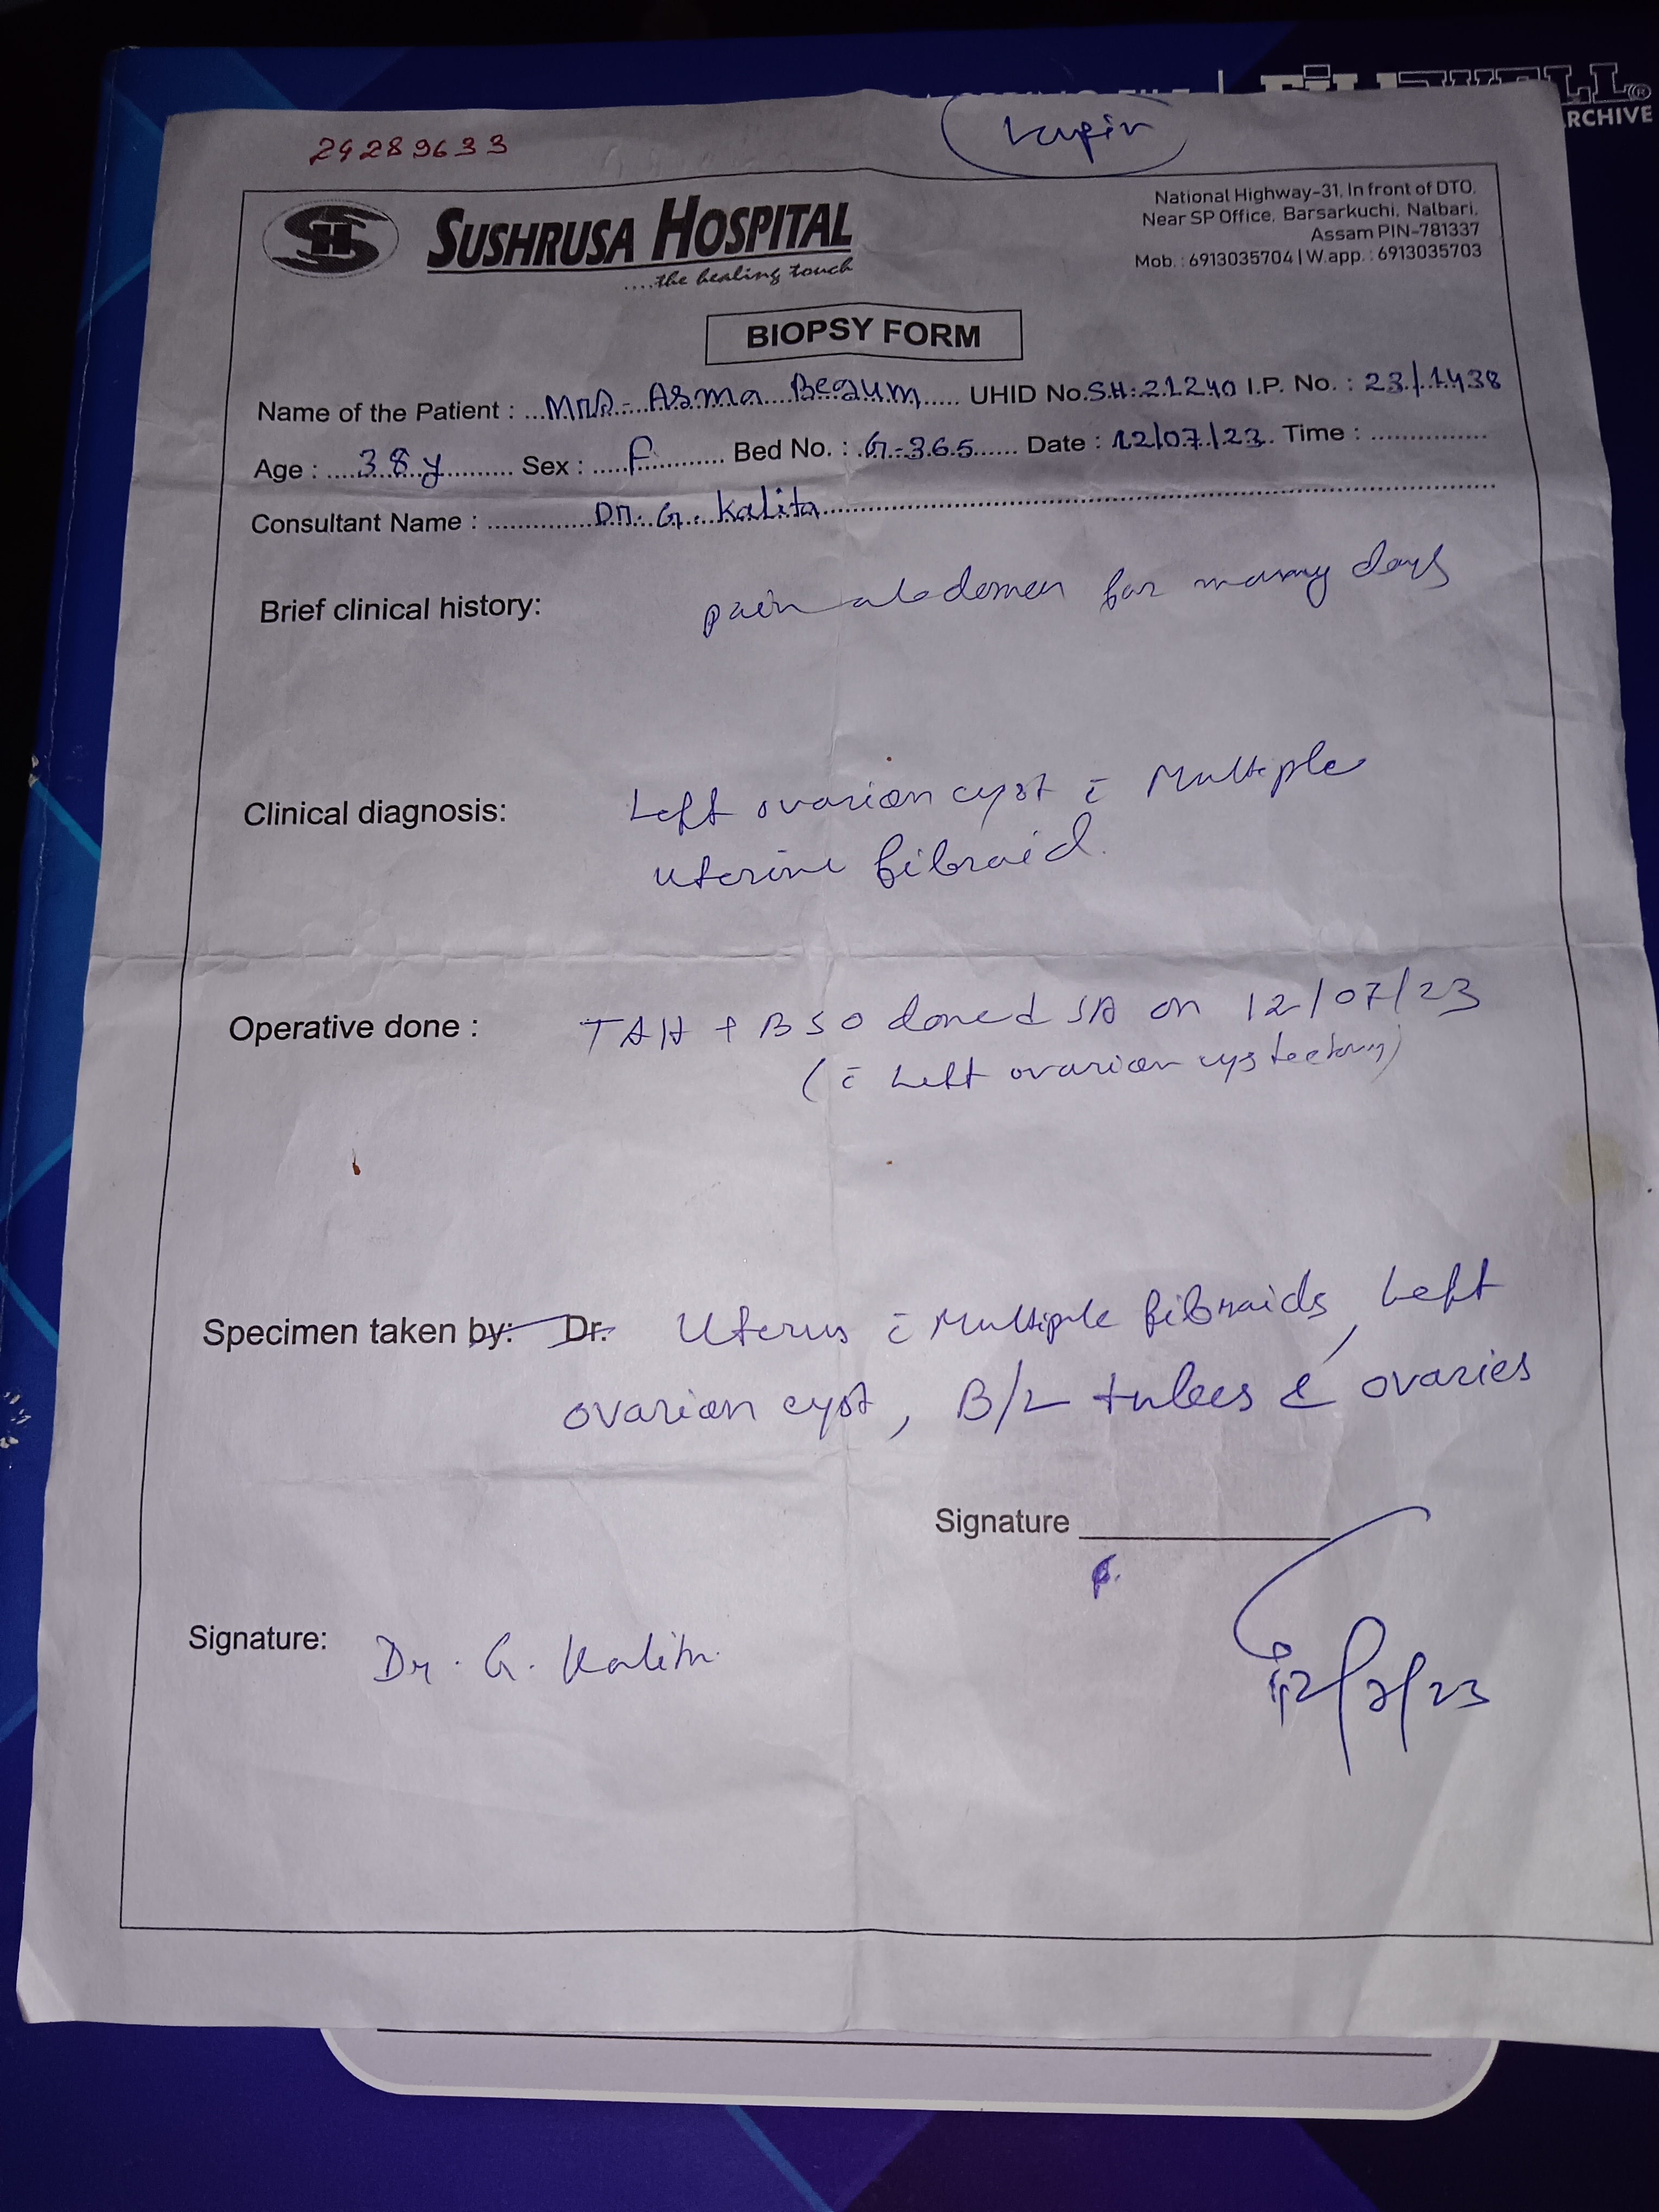 RCHIVE
24289633
Lupin
SUSHRUSA HOSPITAL
....the healing touch
National Highway-31, In front of DTO,
Near SP Office, Barsarkuchi, Nalbari,
Assam PIN-781337
Mob. : 6913035704 | W.app. : 6913035703
BIOPSY FORM
Name of the Patient : Mrs. Asma Begum UHID No. SH:21240 I.P. No. : 23/1438
Age : 38y Sex : F Bed No. : G-365 Date : 12/07/23 Time :
Consultant Name : Dr. G. Kalita
Brief clinical history: pain abdomen for many days
Clinical diagnosis: Left ovarian cyst c̄ Multiple
uterine fibroid.
Operative done : TAH + BSO done SA on 12/07/23
(c̄ Left ovarian cystectomy)
Specimen taken by: Dr. Uterus c̄ Multiple fibroids, Left
ovarian cyst, B/L tubes & ovaries
Signature
Signature: Dr. G. Kalita
12/7/23